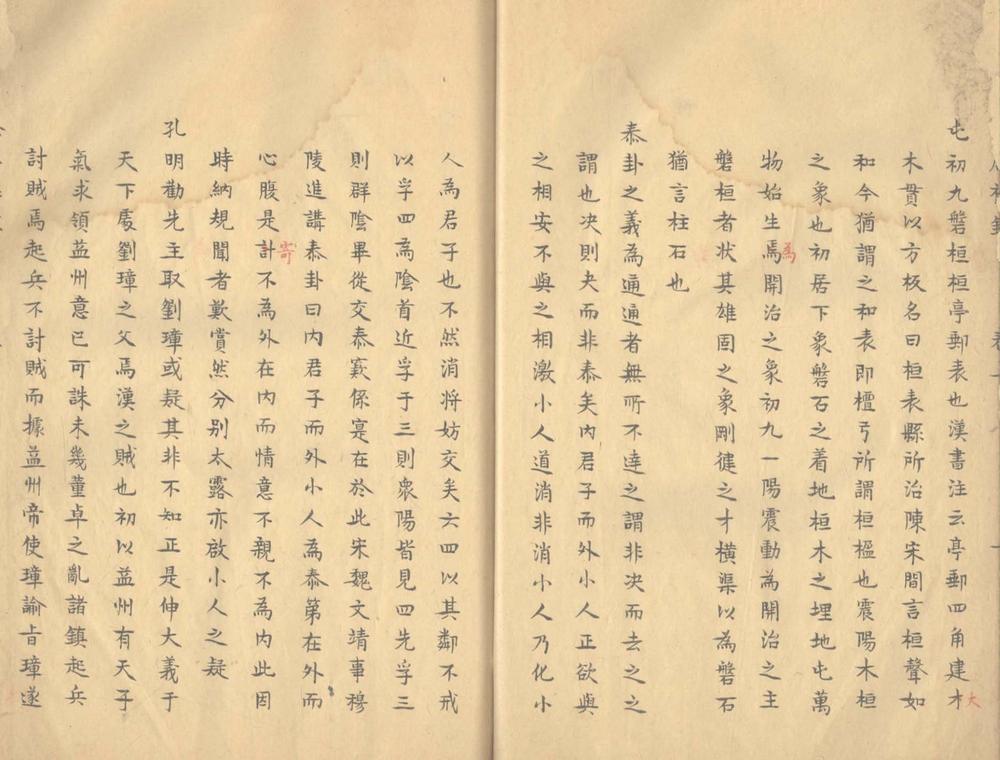 屯初九磐桓桓亭郵表也漢書注云亭郵四角建才
大
木貫以方板名曰桓表縣所治陳宋間言桓聲如
和今猶謂之和表即檀弓所謂桓楹也震陽木桓
之象也初居下象磐石之着地桓木之埋地屯萬
物始生焉開治之象初九一陽震動為開治之主
為
磐桓者狀其雄固之象剛健之才橫渠以為磐石
猶言柱石也
泰卦之義為通通者無所不達之謂非决而去之之
謂也决則夬而非泰矣內君子而外小人正欲與
之相安不與之相激小人道消非消小人乃化小
人為君子也不然消將妨交矣六四以其鄰不戒
以孚四為陰首近孚于三則衆陽皆見四先孚三
則群陰畢從交泰竅係寔在於此宋魏文靖事穆
陵進講泰卦曰內君子而外小人為泰第在外而
心腹是計不為外在內而情意不親不為內此因
寄
時納規聞者歎賞然分别太露亦啟小人之疑
孔明勸先主取劉璋或疑其非不知正是伸大義于
天下處劉璋之父焉漢之賊也初以益州有天子
氣求領益州意已可誅未幾董卓之亂諸鎮起兵
討賊焉起兵不討賊而據益州帝使璋諭㫖璋遂